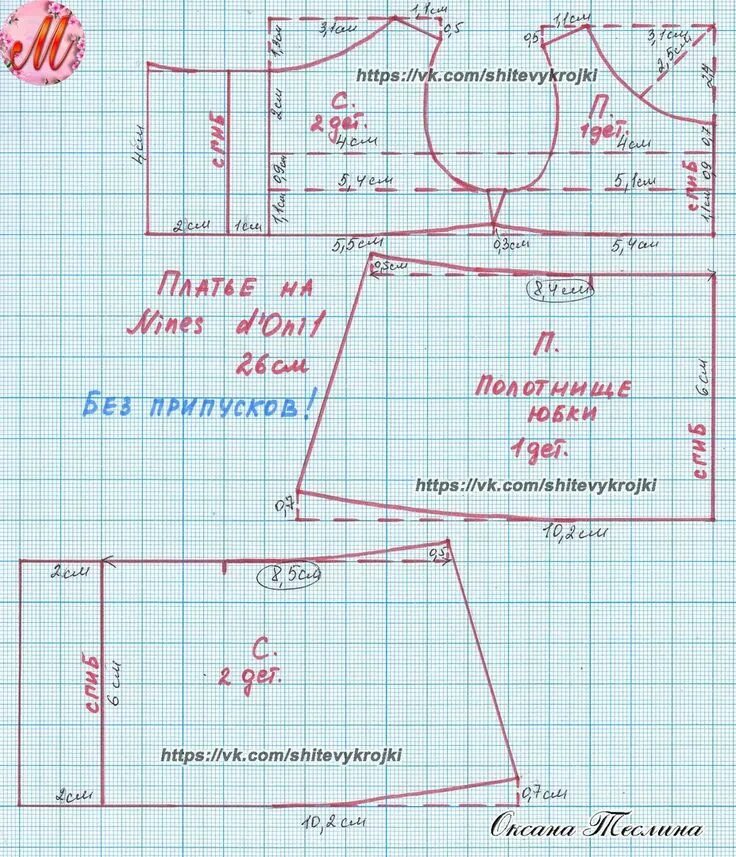 М
1,1см
3,1см
0,5
1,3см
https://vk.com/shitevykrojki
С.
2 дет.
2см
4см
4см
СГИБ
0,9см
5,4см
1,1см
2см
1см
5,5см
0,3см
1,1см
0,5
3,1см
2,5см
2,7
П.
1дет.
4см
0,7
0,9
5,1см
СГИБ
1,1см
5,4см
Платье на
Nines d'Onil
26см
Без припусков!
0,5см
8,4см
П.
Полотнище
юбки
1дет.
6см
СГИБ
https://vk.com/shitevykrojki
0,7
10,2см
2см
8,5см
0,5
С.
2 дет.
СГИБ
6 см
https://vk.com/shitevykrojki
2см
0,7см
10,2см
Оксана Теслина